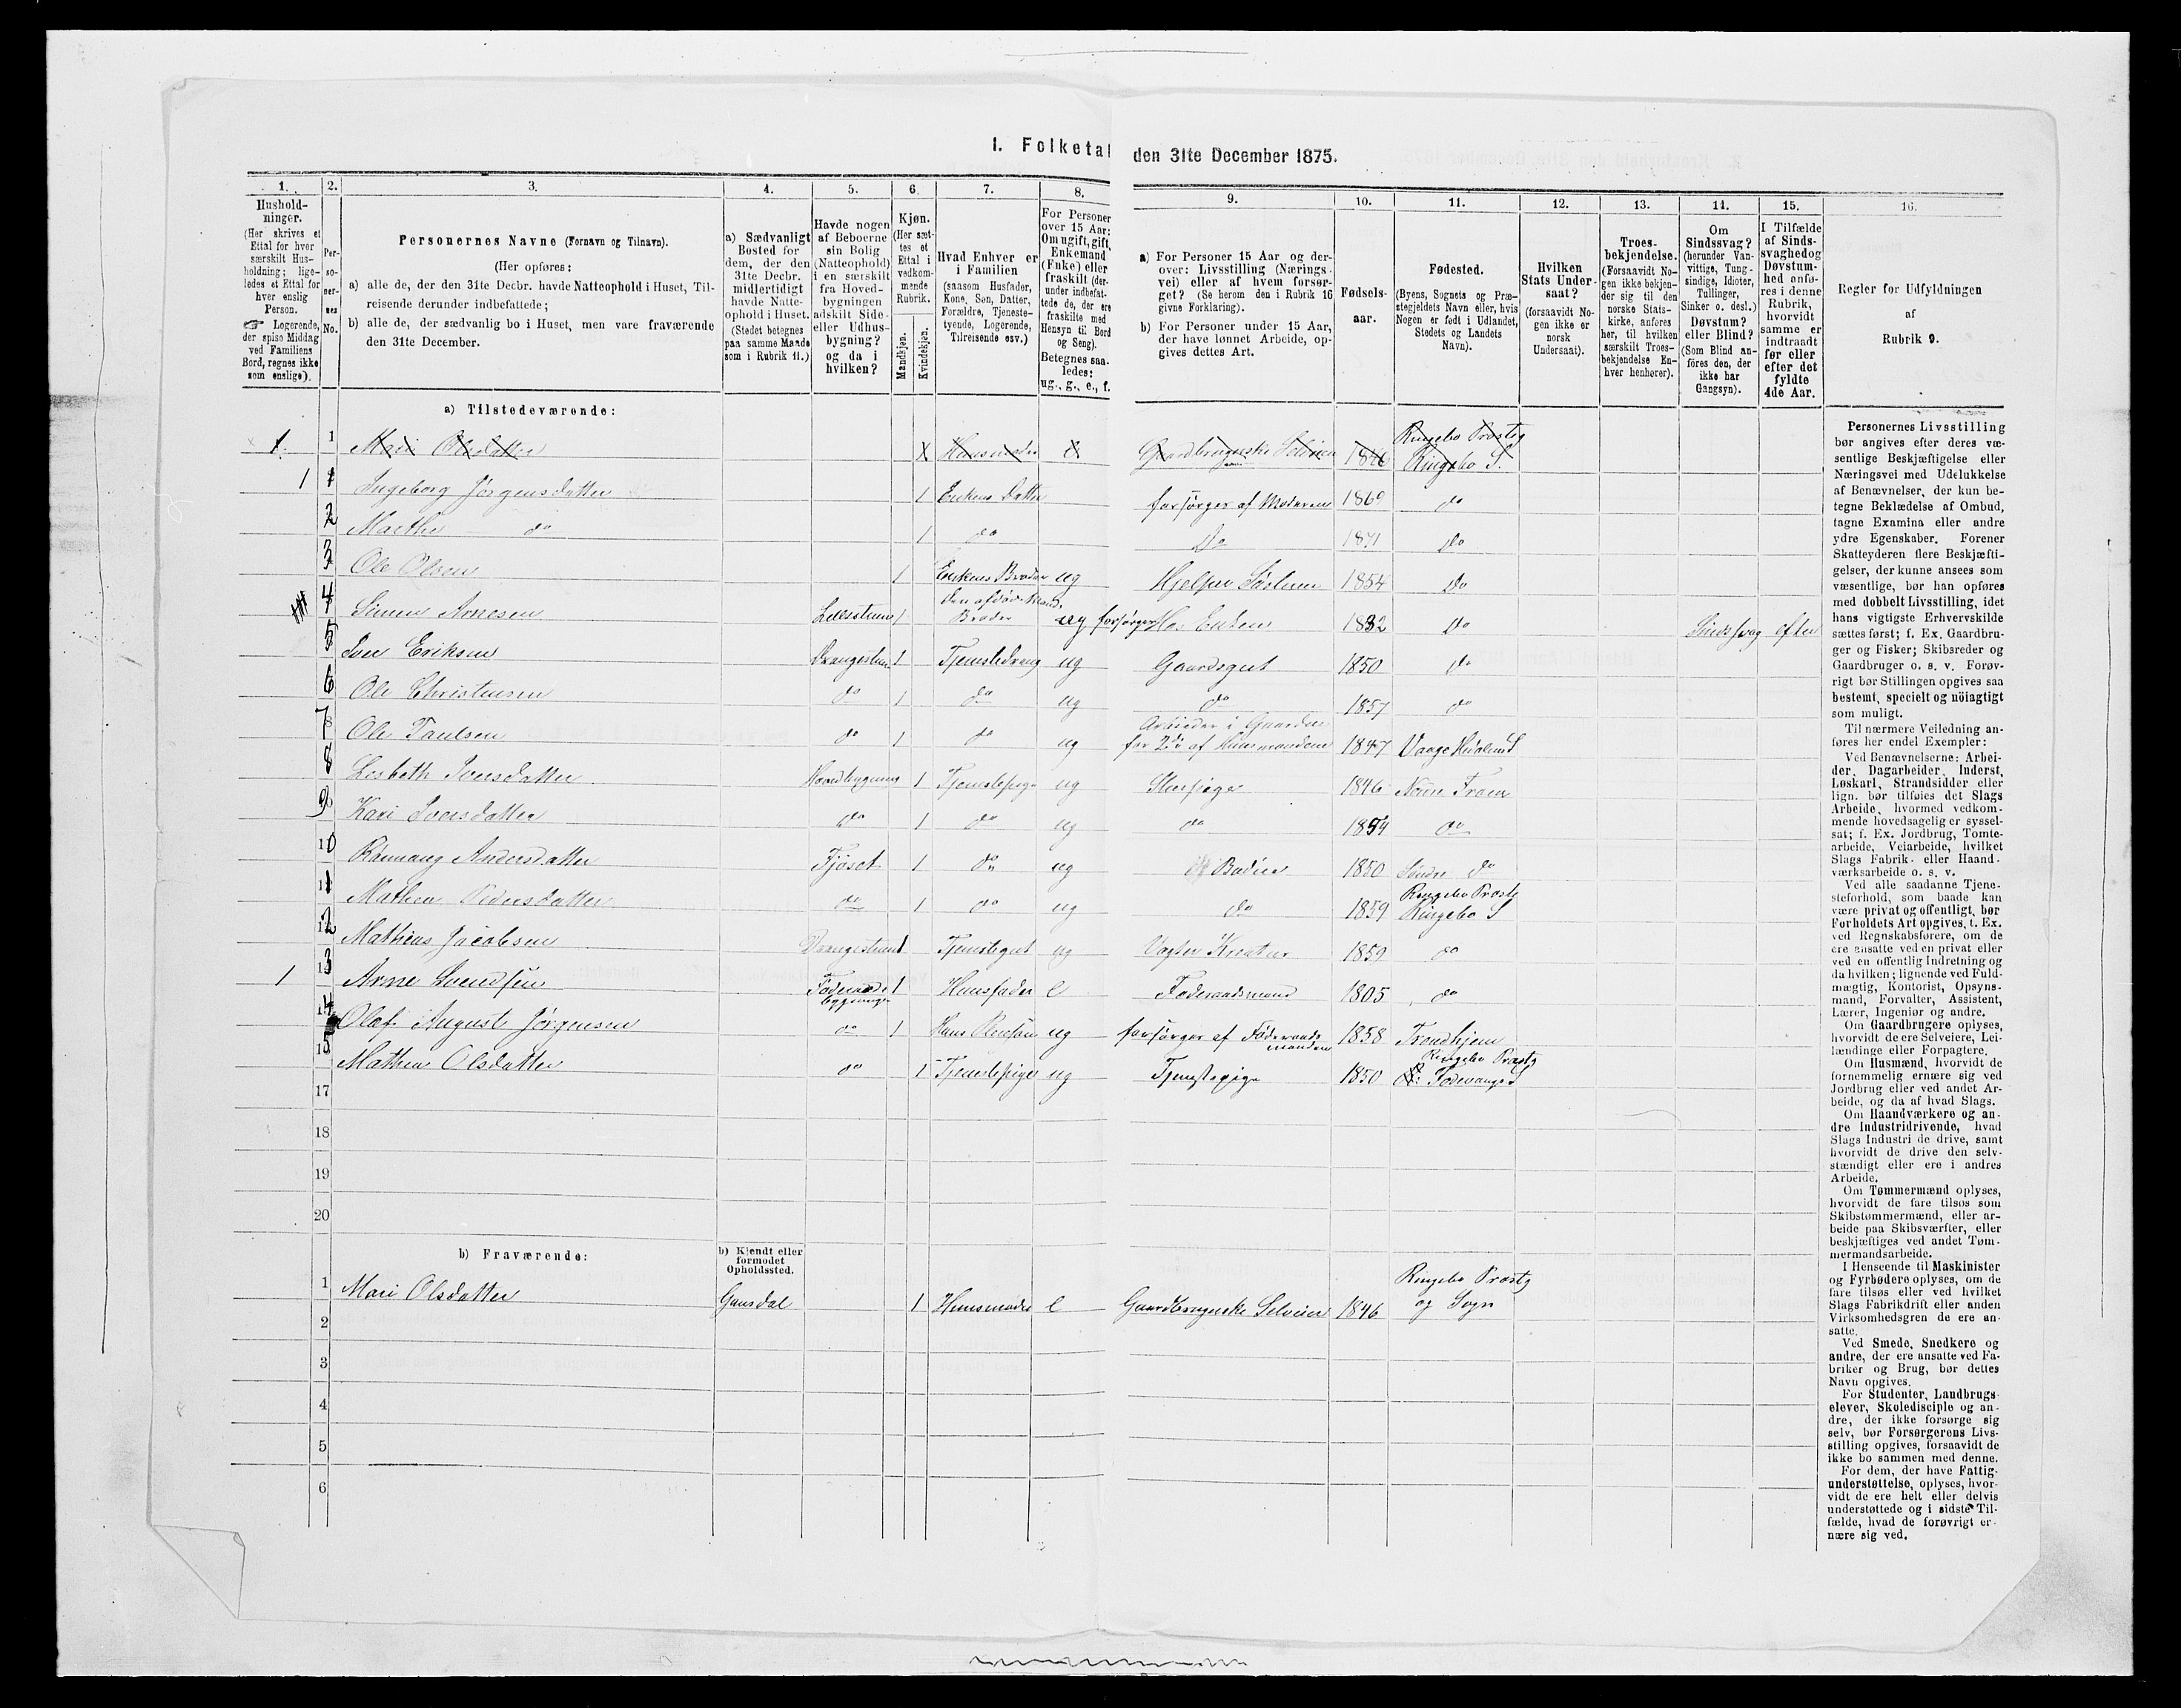 1. Folketal den 31te December 1875.
1. 2. 3. 4. 5. 6. 7. 8. 9. 10. 11. 12. 13. 14. 15. 16.
Hushold-
ninger.
(Her skrives et
Ettal for hver
særskilt Hus-
holdning; lige-
ledes et Ettal for
hver enslig
Person.
☞ Logerende,
der spise Middag
ved Familiens
Bord, regnes ikke
som enslige).
Per-
so-
ner-
nes
No.
Personernes Navne (Fornavn og Tilnavn).
(Her opføres:
a) alle de, der den 31te Decbr. havde Natteophold i Huset, Til-
reisende derunder indbefattede;
b) alle de, der sædvanlig bo i Huset, men vare fraværende
den 31te December.
a) Sædvanligt
Bosted for
dem, der den
31te Decbr.
midlertidigt
havde Natte-
ophold i Huset.
(Stedet betegnes
paa samme Maade
som i Rubrik 11.)
Havde nogen
af Beboerne
sin Bolig
(Natteophold)
i en særskilt
fra Hoved-
bygningen
adskilt Side-
eller Udhus-
bygning?
og da i
hvilken?
Kjøn.
(Her sæt-
tes et
Ettal i
vedkom-
mende
Rubrik.
Mandkjøn.
Kvindekjøn.
Hvad Enhver er
i Familien
(saasom Husfader,
Kone, Søn, Datter,
Forældre, Tjeneste-
tyende, Logerende,
Tilreisende osv.)
For Personer
over 15 Aar:
Om ugift, gift,
Enkemand
(Enke) eller
fraskilt (der-
under indbefat-
tede de, der ere
fraskilte med
Hensyn til Bord
og Seng).
Betegnes saa-
ledes:
ug., g., e., f.
a) For Personer 15 Aar og der-
over: Livsstilling (Nærings-
vei) eller af hvem forsør-
get? (Se herom den i Rubrik 16
givne Forklaring).
b) For Personer under 15 Aar,
der have lønnet Arbeide, op-
gives dettes Art.
Fødsels-
aar.
Fødested.
(Byens, Sognets og Præ-
stegjeldets Navn eller, hvis
Nogen er født i Udlandet,
Stedets og Landets
Navn).
Hvilken
Stats Under-
saat?
(forsaavidt No-
gen ikke er
norsk
Undersaat).
Troes-
bekjendelse.
(Forsaavidt No-
gen ikke bekjen-
der sig til den
norske Stats-
kirke, anføres
her, til hvilken
særskilt Troes-
bekjendelse En-
hver henhører).
Om
Sindssvag?
(herunder Van-
vittige, Tung-
sindige, Idioter,
Tullinger,
Sinker o. desl.)
Døvstum?
eller Blind?
(Som Blind an-
føres den, der
ikke har
Gangsyn).
I Tilfælde
af Sinds-
svaghed og
Døvstum-
hed anfø-
res i denne
Rubrik,
hvorvidt
samme er
indtraadt
før eller
efter det
fyldte
4de Aar.
Regler for Udfyldningen
af
Rubrik 9.
a) Tilstedeværende:
1 1 Mari Olsdatter Huusmoder e Gaardbrugerske Selveier 1846 Ringebo Præstg Ringebo S.
1 1 Ingeborg Jörgensdatter 1 Enkens Datter forsörges af Moderen 1869 do
2 Marthe do 1 do Do 1871 Do
3 Ole Olsen 1 Enkens Broder ug Hjelper Söstren 1854 Do
4 Simen Arnesen 1 den afdöde Mands Broder ug forsörges Hos Enken 1832 Do Sindssvag efter
5 Iver Eriksen Drengestuen 1 Tjenestedreng ug Gaardsgut 1850 do
6 Ole Christensen do 1 do ug do 1857 do
7 Ole Paulsen do 1 do ug Arbeider i Gaarden 1847 Vaage
8 Lisbeth Iversdatter Hovedbygning 1 Tjenestepige ug Stuepige 1846 Nörre Fron
9 Kari Iversdatter do 1 do ug do 1854 do
10 Rønnaug Andersdatter Fjöset 1 do ug Budeie 1850 Söndre do
11 Mathea Pedersdatter do 1 do ug do 1859 Ringebo Præstg Ringebo S
12 Mathias Jacobsen Drengestuen 1 Tjenestegut ug Vogter Kreatur 1859 do
1 13 Arne Svendsen Föderaads bygningen 1 Huusfader e Föderaadsmand 1805 do
14 Olaf August Jörgensen do 1 Hans ug forsörges af Föderaads manden 1858 Trondhjem
15 Mathea Olsdatter do 1 Tjenestepige ug Tjenestepige 1850 Ringebo Præstg Fodevangs S
17
18
19
20
b) Fraværende:
b) Kjendt eller
formodet
Opholdssted.
1 Mari Olsdatter Gausdal 1 Huusmoder e Gaardbrugerske Selveier 1846 Ringebo Præstg og Sogn
2
3
4
5
6
Personernes Livsstilling
bør angives efter deres væ-
sentlige Beskjæftigelse eller
Næringsvei med Udelukkelse
af Benævnelser, der kun be-
tegne Beklædelse af Ombud,
tagne Examina eller andre
ydre Egenskaber. Forener
Skatteyderen flere Beskjæfti-
gelser, der kunne ansees som
væsentlige, bør han opføres
med dobbelt Livsstilling, idet
hans vigtigste Erhvervskilde
sættes først; f. Ex. Gaardbru-
ger og Fisker; Skibsreder og
Gaardbruger o. s. v. Forøv-
rigt bør Stillingen opgives saa
bestemt, specielt og nöiagtigt
som muligt.
Til nærmere Veiledning an-
føres her endel Exempler:
Ved Benævnelserne: Arbei-
der, Dagarbeider, Inderst,
Løskarl, Strandsidder eller
lign. bør tilføies det Slags
Arbeide, hvormed vedkom-
mende hovedsagelig er syssel-
sat; f. Ex. Jordbrug, Tomte-
arbeide, Veiarbeide, hvilket
Slags Fabrik- eller Haand-
værksarbeide o. s. v.
Ved alle saadanne Tjene-
steforhold, som baade kan
være privat og offentligt, bør
Forholdets Art opgives, t. Ex.
ved Regnskabsførere, om de
ere ansatte ved en privat eller
ved en offentlig Indretning og
da hvilken; lignende ved Fuld-
mægtig, Kontorist, Opsyns-
mand, Forvalter, Assistent,
Lærer, Ingeniør og andre.
Om Gaardbrugere oplyses,
hvorvidt de ere Selveiere, Lei-
lændinge eller Forpagtere.
Om Husmænd, hvorvidt de
fornemmelig ernære sig ved
Jordbrug eller ved andet Ar-
beide, og da af hvad Slags.
Om Haandværkere og an-
dre Industridrivende, hvad
Slags Industri de drive, samt
hvorvidt de drive den selv-
stændigt eller ere i andres
Arbeide.
Om Tømmermænd oplyses,
hvorvidt de fare tilsøs som
Skibstømmermænd, eller ar-
beide paa Skibsværfter, eller
beskjæftiges ved andet Tøm-
mermandsarbeide.
I Henseende til Maskinister
og Fyrbødere oplyses, om de
fare tilsøs eller ved hvilket
Slags Fabrikdrift eller anden
Virksomhedsgren de ere an-
satte.
Ved Smede, Snedkere og
andre, der ere ansatte ved Fa-
briker og Brug, bør dettes
Navn opgives.
For Studenter, Landbrugs-
elever, Skoledisciple og an-
dre, der ikke forsørge sig
selv, bør Forsørgerens Livs-
stilling opgives, forsaavidt de
ikke bo sammen med denne.
For dem, der have Fattig-
understøttelse, oplyses, hvor-
vidt de ere helt eller delvis
understøttede og i sidste Til-
fælde, hvad de forøvrigt er-
nære sig ved.